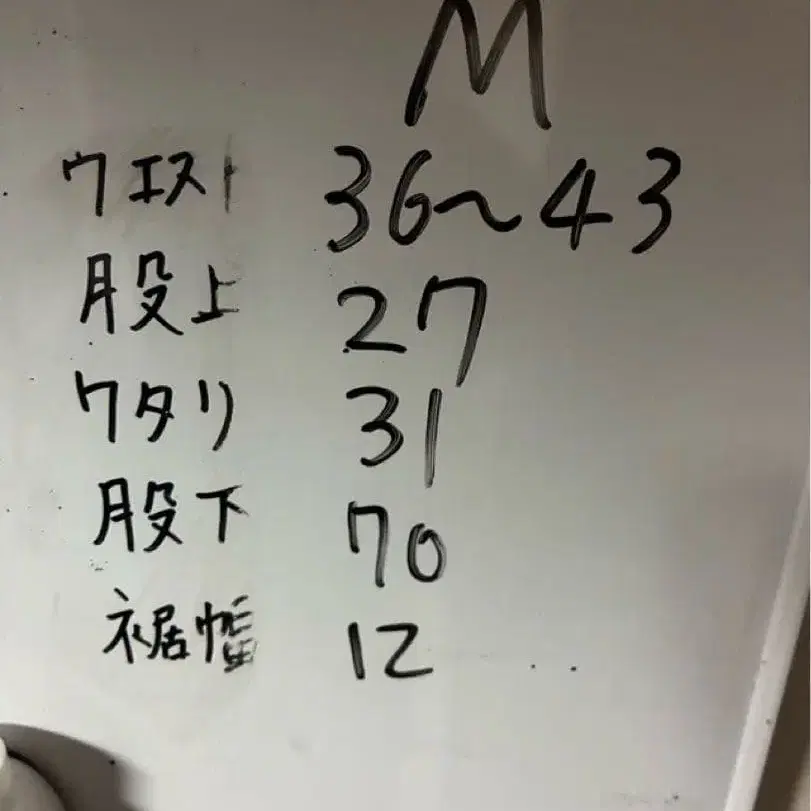 M
ウエスト 36〜43
股上 27
ワタリ 31
股下 70
裾幅 12